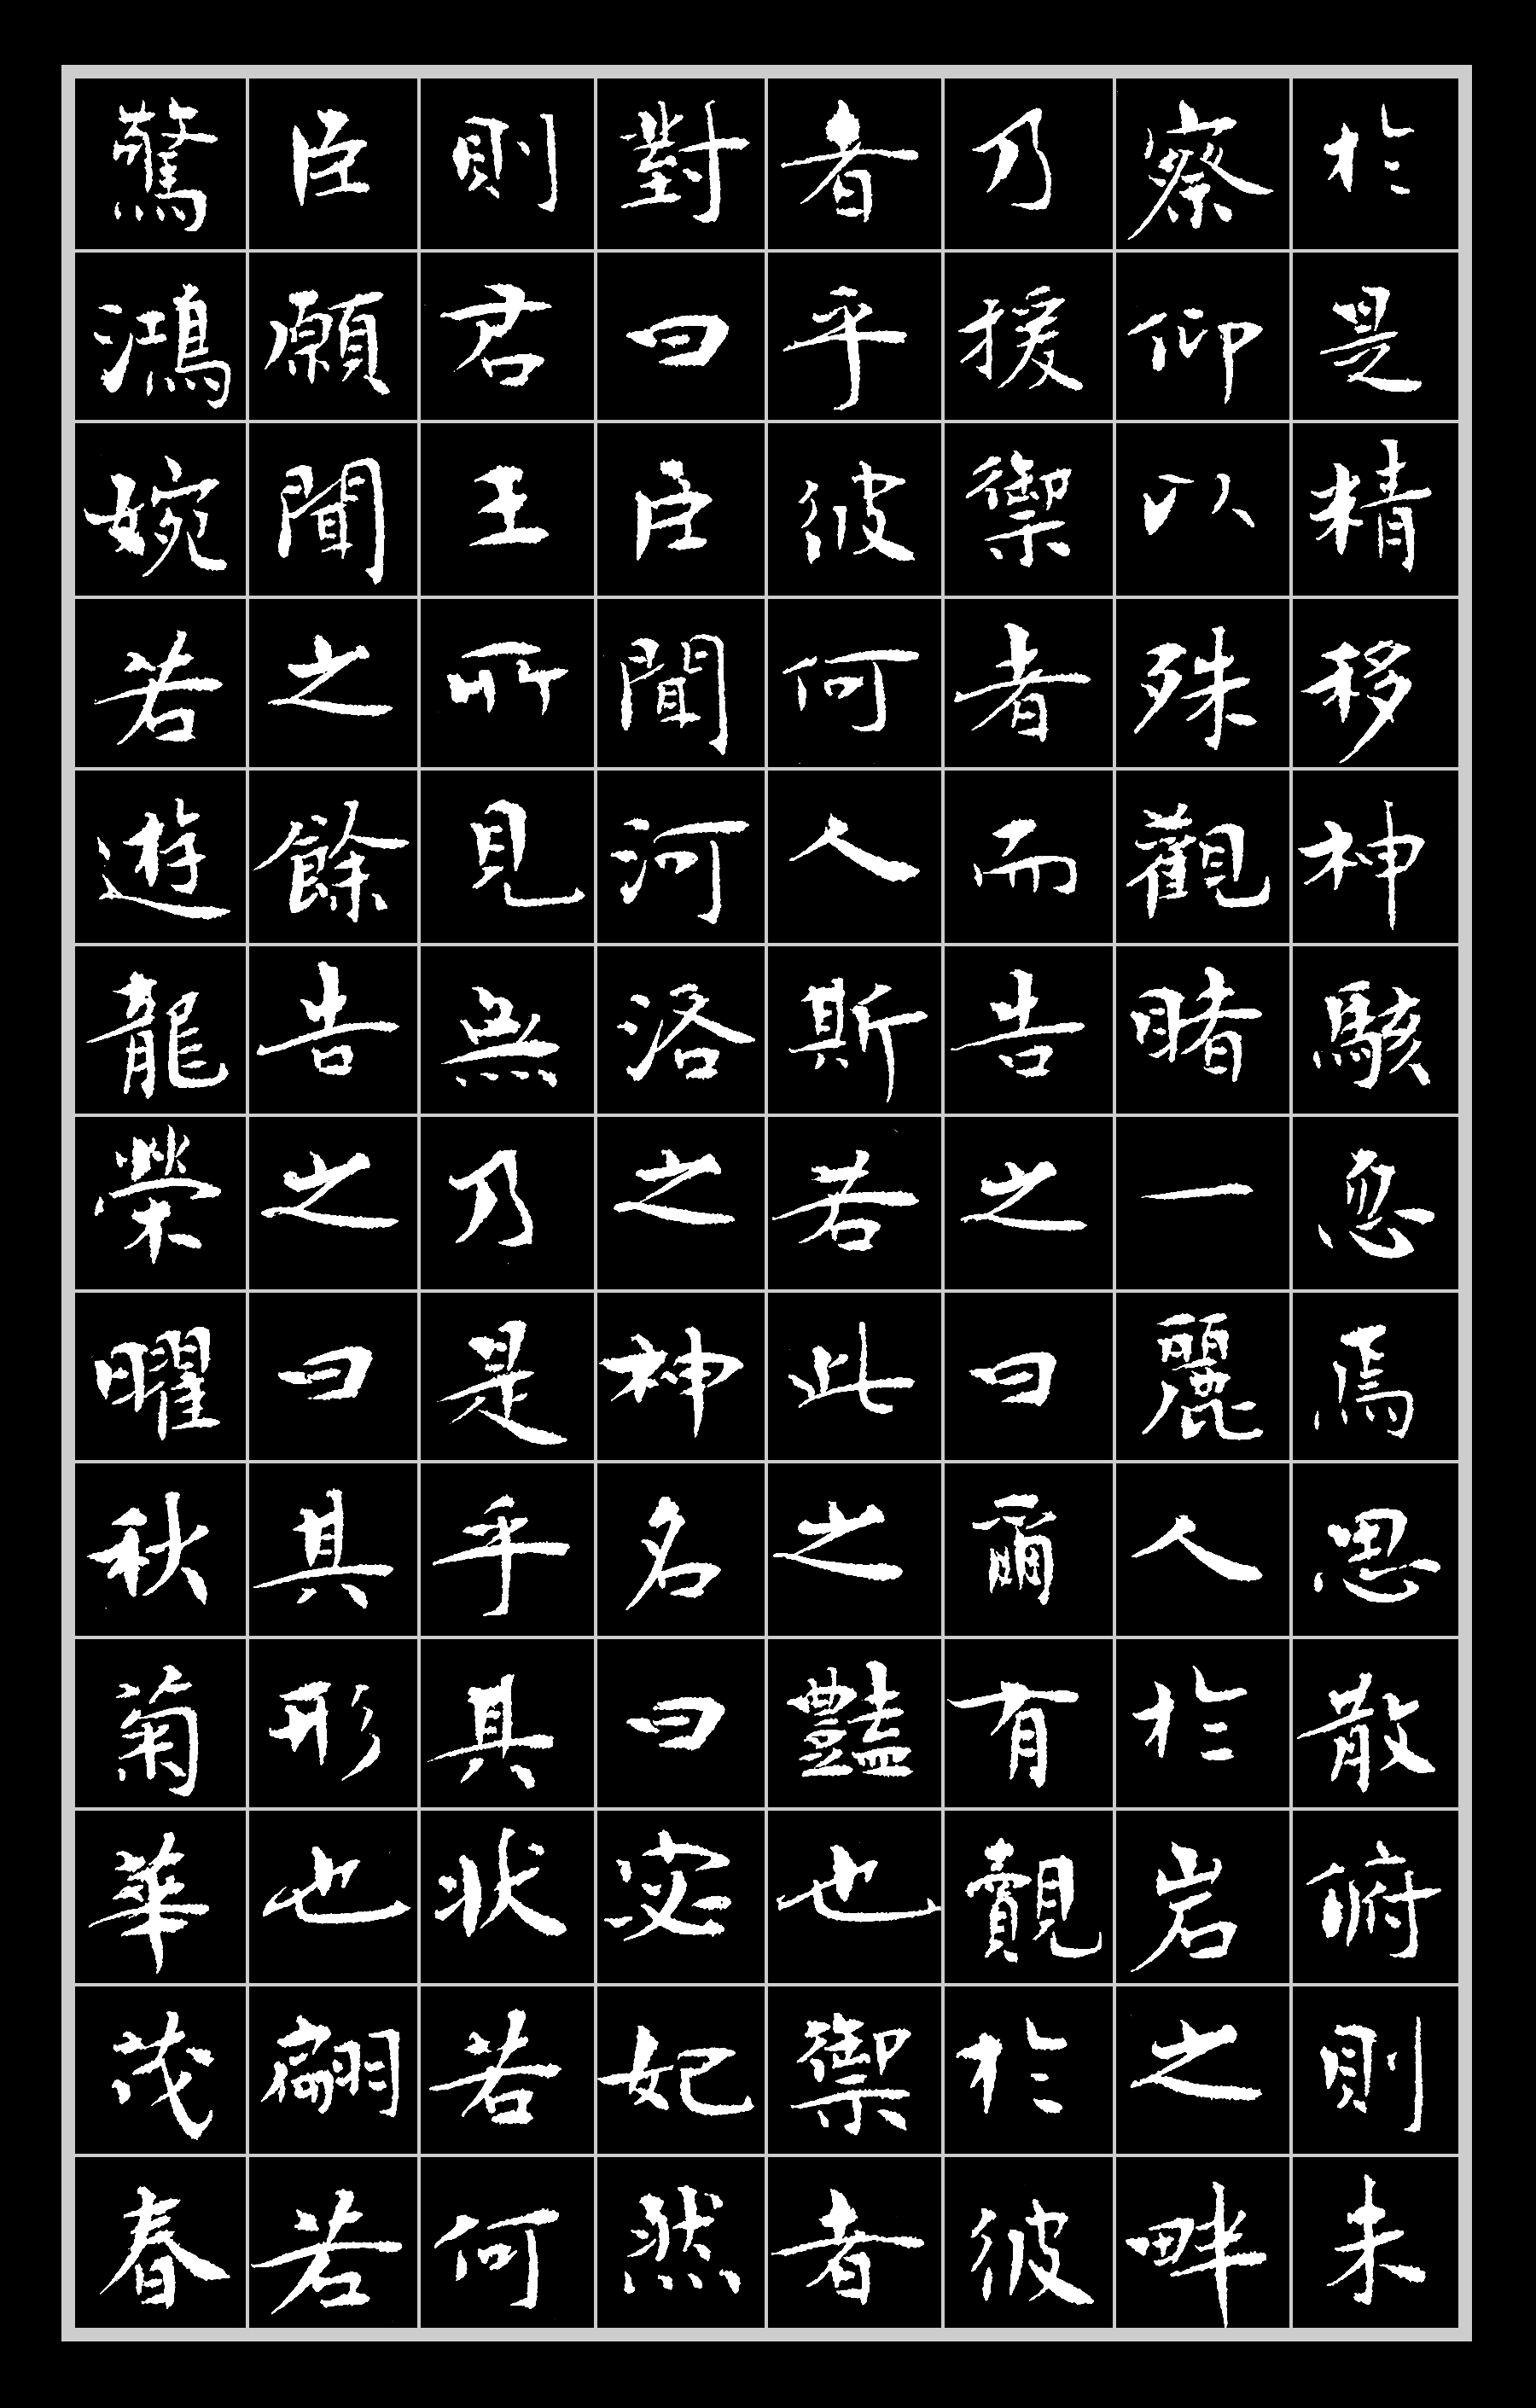 於是精移神駭忽焉思散俯則未
察仰以殊觀睹一麗人於岩之畔
乃援禦者而告之曰爾有覿於彼
者乎彼何人斯若此之豔也禦者
對曰臣聞河洛之神名曰宓妃然
則君王所見無乃是乎其狀若何
臣願聞之餘告之曰其形也翩若
驚鴻婉若遊龍榮曜秋菊華茂春